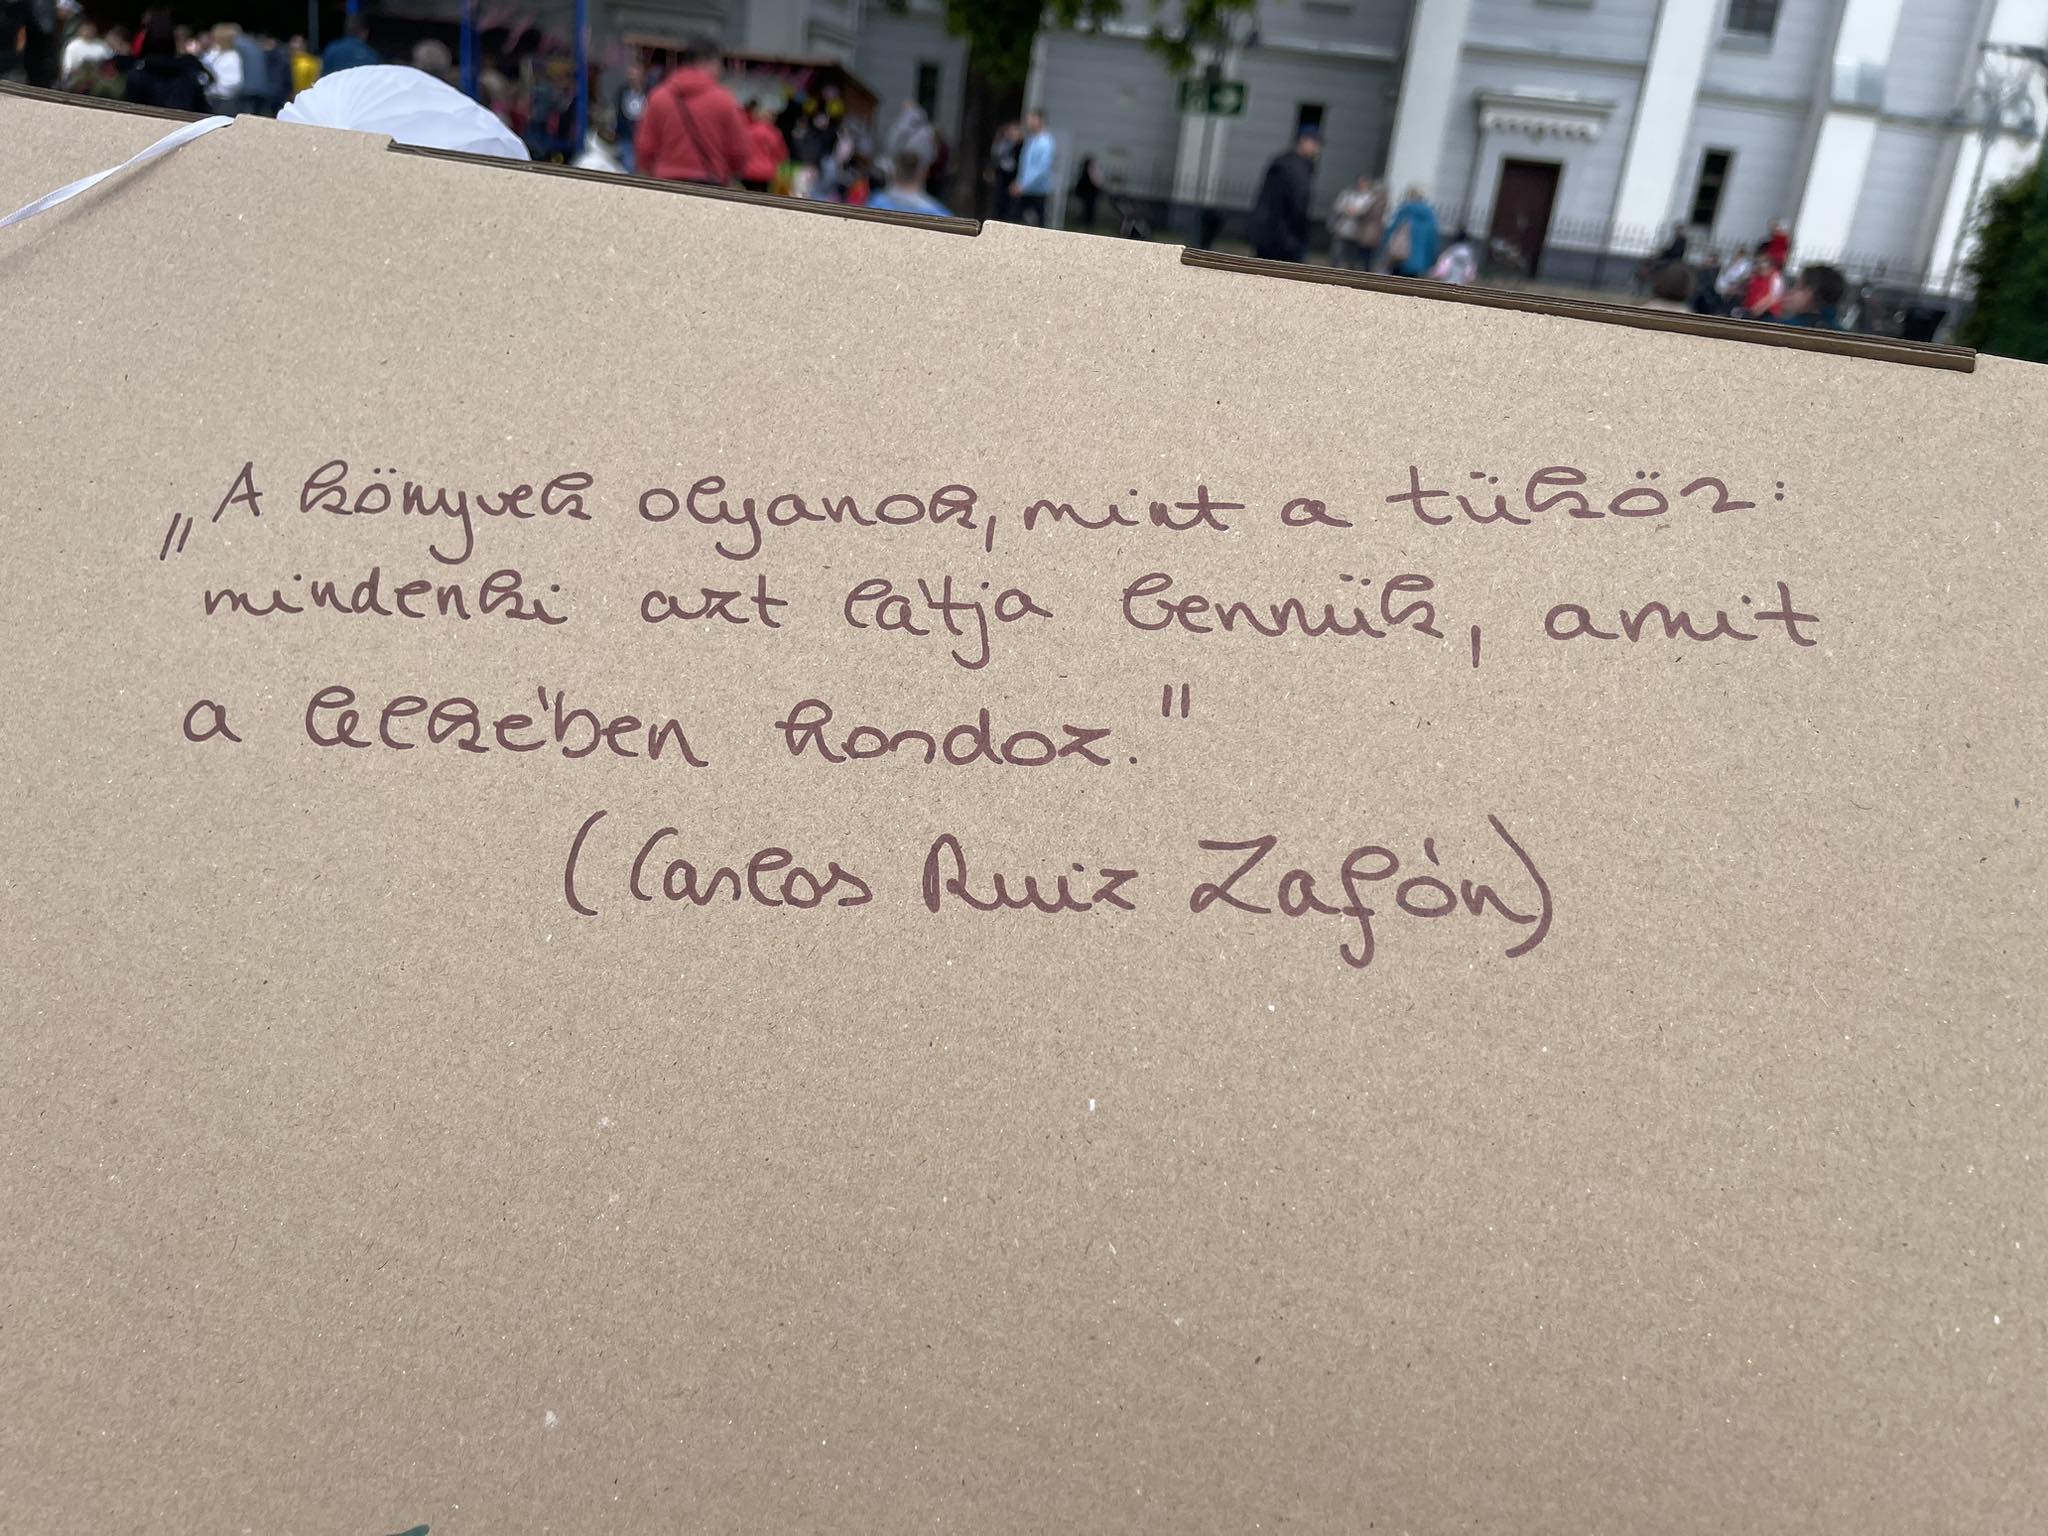 „A könyvek olyanok, mint a tükör:
mindenki azt látja bennük, amit
a lelkében hordoz."
(Carlos Ruiz Zafón)